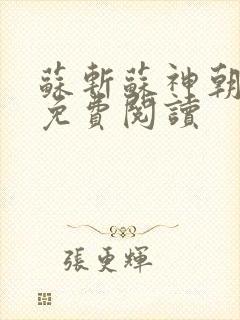 蘇斬蘇神朝
免費閱讀
張更輝